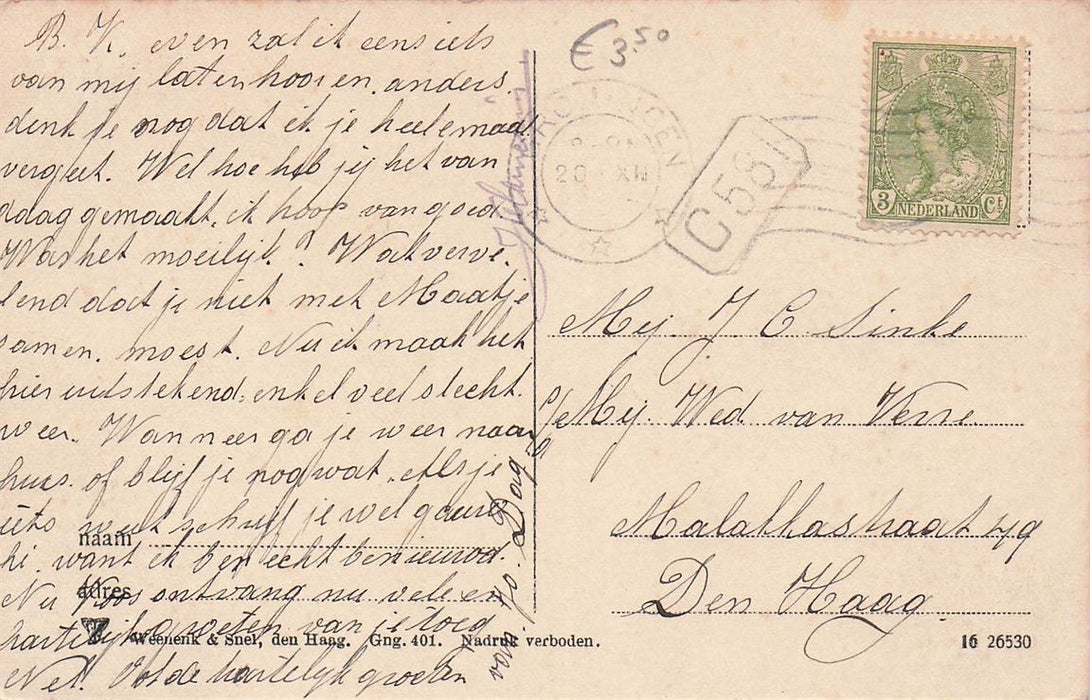 B. K, even zal ik eens iets
van mij laten hooren. anders
denk je nog dat ik je heelemaal
vergeet. Wel hoe heb jij het van
daag gemaakt. ik hoop van goed.
Was het moeilijk? Wat verve
lend dat je niet met Maatje
samen. moest. Nu ik maak het
hier uitstekend. enkel veel slecht
weer. Wanneer ga je weer naar
huis. of blijf je nog wat. Als je
iets weet schrijf je wel gauw
hi. want ik ben echt benieuwd.
Nu Koos ontvang nu vele en
hartelijke groeten van je toeg
Nel. Ook de hartelijk groeten
van Jo. Dag
naam
adres
Weenenk & Snel, den Haag. Gng. 401. Nadruk verboden.
€ 3.50
GRONINGEN
20 XII
C 561
3 NEDERLAND Ct
Mej. J C. Sinke
p/a Mej. Wed van Verre.
Malakkastraat 49
Den Haag
16 26530